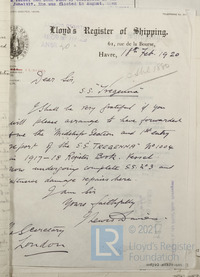 Lloyd's Register of Shipping.
82, rue de la Bourse,
Havre, 18th Feb. 1920
Dear Sir,
S.S. "Tregenna"
I shall be very grateful if you
will please arrange to have forwarded
from the Midship Section and 1st entry
report of the S.S "TREGENNA" No 1004
in 1917-18 Register Book. Vessel
now undergoing complete S.S. No3 and
damage repairs here
I am Sir
Yours faithfully
The Secretary
London
© 2021
Lloyd's Register
Foundation